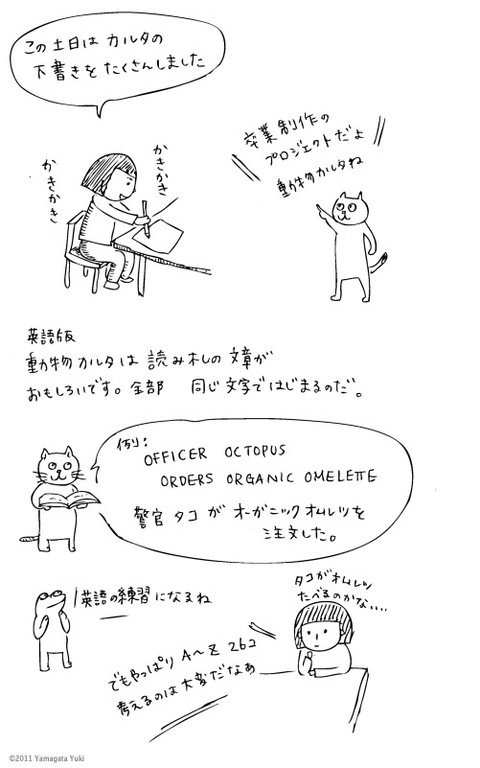 この土日は カルタの
下書きを たくさんしました
かきかき
かきかき
卒業制作の
プロジェクトだよ
動物カルタね
英語版
動物カルタは 読み札の文章が
おもしろいです。全部 同じ文字ではじまるのだ。
例:
OFFICER OCTOPUS
ORDERS ORGANIC OMELETTE
警官 タコ が オーガニック オムレツを
注文した。
英語の練習になるね
タコがオムレツ
たべるのかな....
でもやっぱり A〜Z 26コ
考えるのは大変だなぁ
©2011 Yamagata Yuki